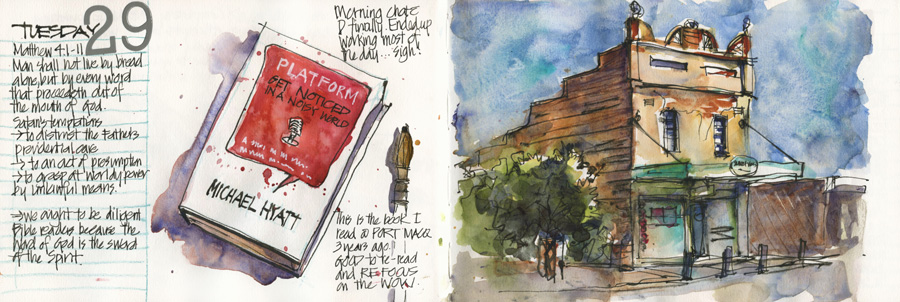 TUESDAY 29
Matthew 4:1-11
Man shall not live by bread
alone, but by every word
that proceedeth out of
the mouth of God.
Satan's temptations
→ to distrust the Father's
providential care
→ to an act of presumption
→ to grasp at worldly power
by unlawful means.
→ we ought to be diligent
Bible readers because the
word of God is the sword
of the Spirit.
PLATFORM
GET NOTICED
IN A NOISY WORLD
MICHAEL HYATT
Morning
D finally. Ended up
working most of
the day... sigh!
This is the book I
read @ PORT MACQ
3 years ago!!
GOOD to re-read
and REFOCUS
on the WOW!